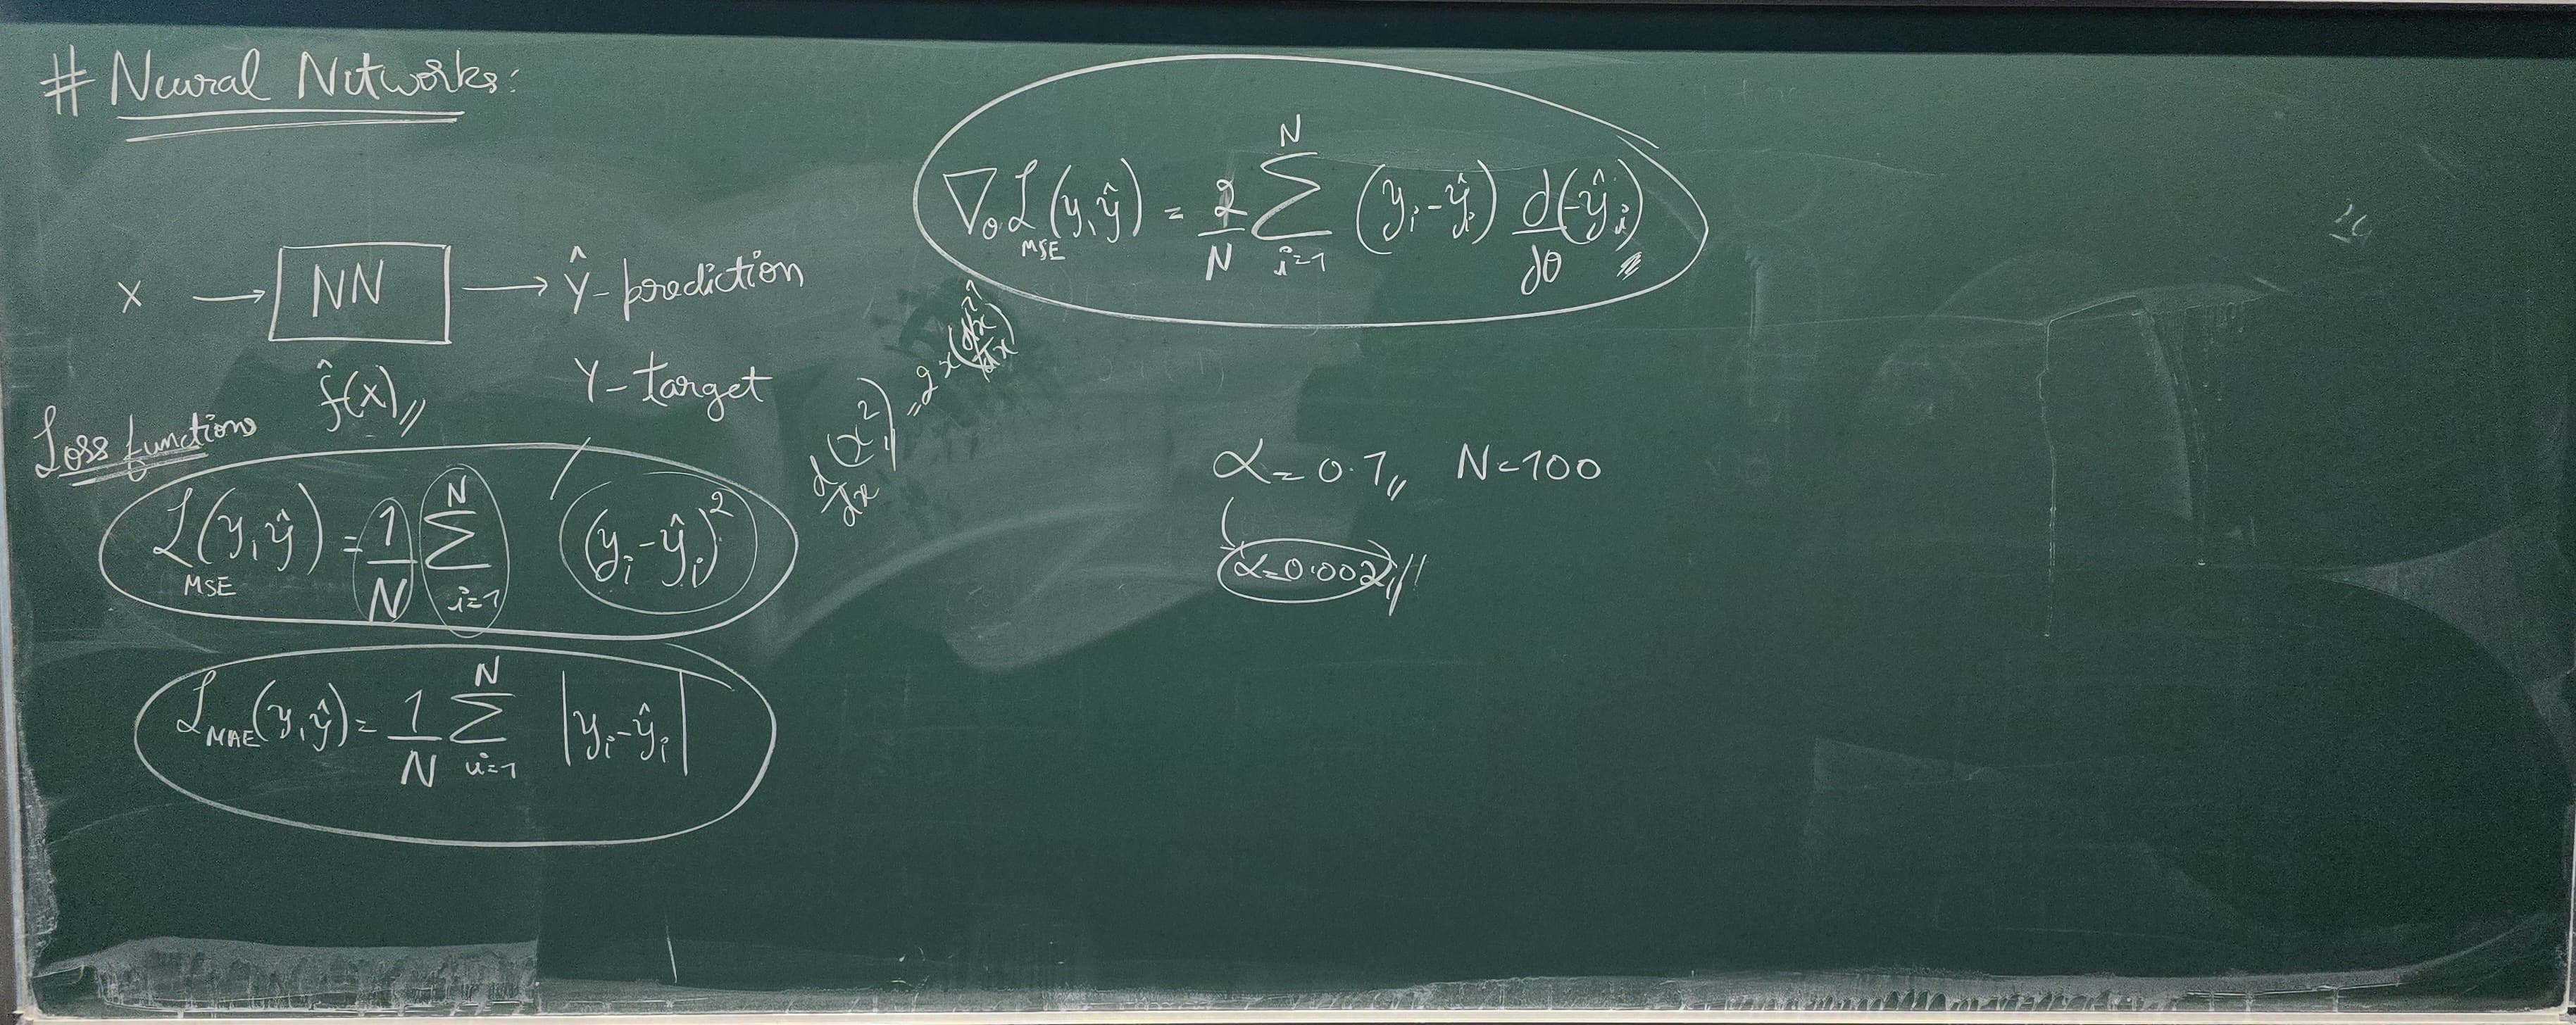 # Neural Networks:
X → NN → Ŷ - prediction
f̂(x)
Y - target
Loss functions
L_MSE(y, ŷ) = 1/N Σ_{i=1}^{N} (y_i - ŷ_i)^2
L_MAE(y, ŷ) = 1/N Σ_{i=1}^{N} |y_i - ŷ_i|
d/dx (x^2) = 2x
∇_θ L_MSE(y, ŷ) = 2/N Σ_{i=1}^{N} (y_i - ŷ_i) d(-ŷ_i)/dθ
α = 0.1 N = 100
α = 0.002